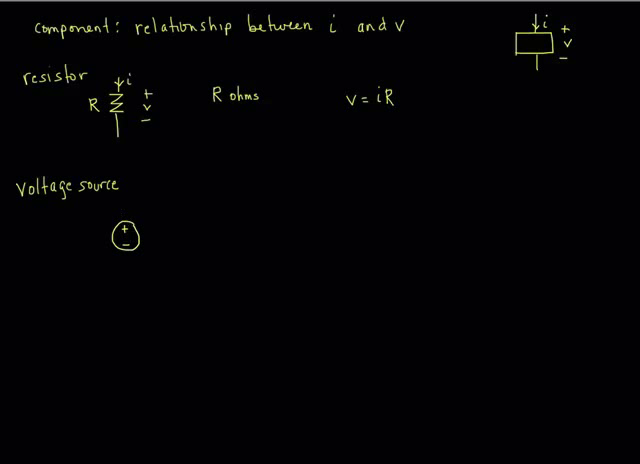 component: relationship between i and v
i
+
v
-
resistor
i
R
+
v
-
R ohms
v = iR
Voltage source
+
-